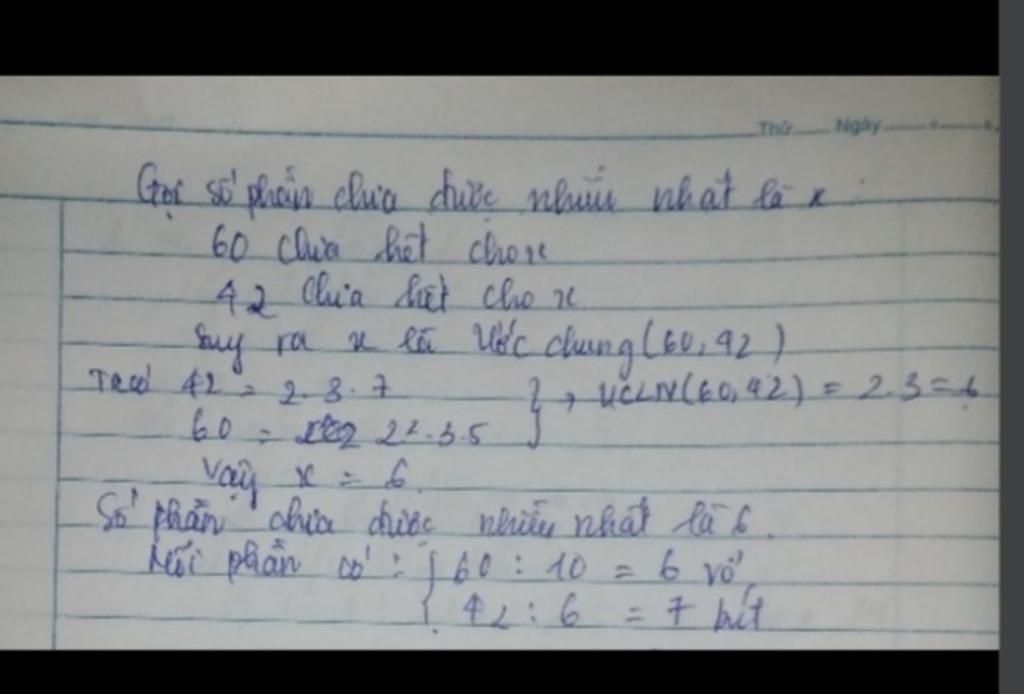 Thứ...... Ngày...........
Gọi số phần chia được nhiều nhất là x
60 chia hết cho x
42 chia hết cho x
Suy ra x là Ước chung (60, 42)
Ta có 42 = 2.3.7 } , ƯCLN(60,42) = 2.3=6
60 = 2².3.5
Vậy x = 6.
Số phần chia được nhiều nhất là 6.
Mỗi phần có : { 60 : 10 = 6 vở
42 : 6 = 7 bút